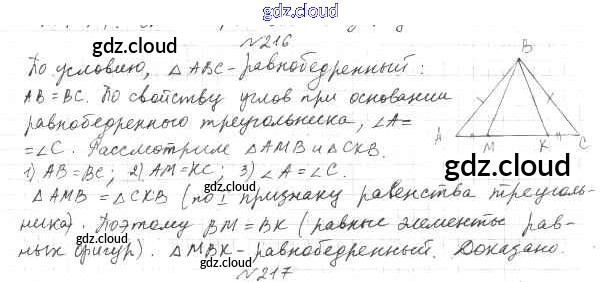 gdz.cloud
gdz.cloud
№216
gdz.cloud
По условию, △ABC - равнобедренный:
AB = BC. По свойству углов при основании
равнобедренного треугольника, ∠A =
= ∠C. Рассмотрим △AMB и △CKB.
1) AB = BC; 2) AM = KC; 3) ∠A = ∠C.
△AMB = △CKB (по I признаку равенства треуголь-
ника). Поэтому BM = BK (равные элементы рав-
ных фигур). △MBK - равнобедренный. Доказано.
B
A M K C
gdz.cloud
gdz.cloud
gdz.cloud
gdz.cloud
№217
gdz.cloud